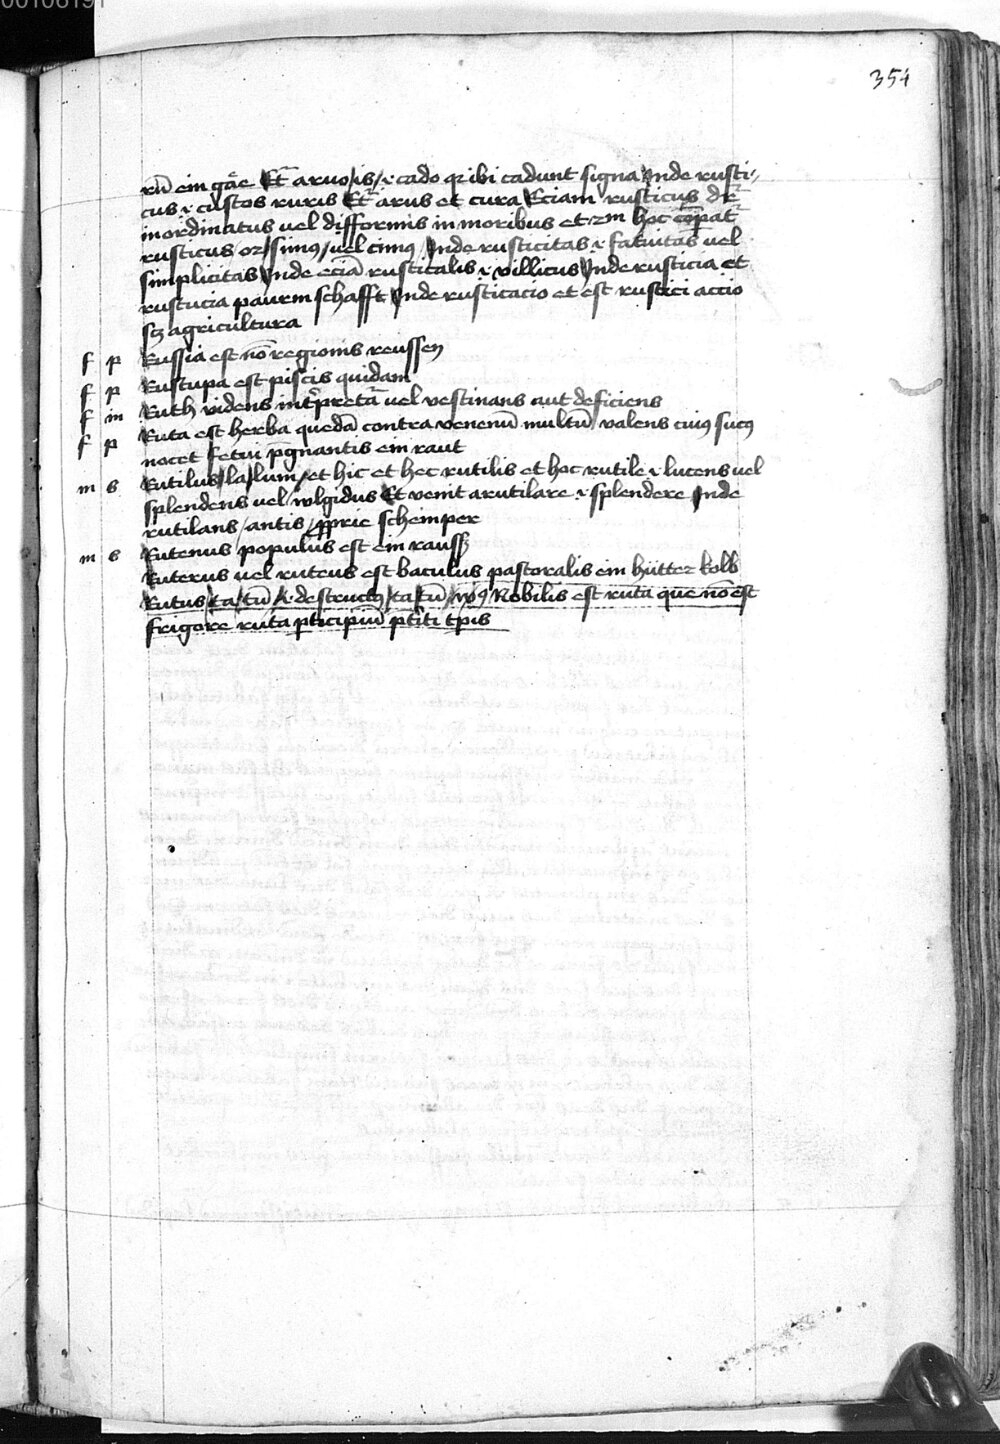 00108191
354
rū ein gáe Et̄ aruo/is/ ⁊ cado qꝛ ibi cadunt signa Inde rusti⸗
cus ⁊ custos ruris Et̄ arus et cura Eciam rusticus dr̄
inordinatus vel difformis in moribus et ẜm hoc cōpat̄
rusticus or/simꝰ/ vel cimꝰ Inde rusticitas ⁊ fatuitas vel
simplicitas Inde eciā rusticalis ⁊ villicus Inde rusticia et
rusticia paurnschafft Inde rusticacio et est rustici accio
sꝫ agricultura
f p Russia est nō regionis reussen
f p Rustupa est piscis quidam
f in Ruth videns int̄pretat̄ vel vestinans aut deficiens
f p Ruta est herba quedā contra venenū multū valens cuiꝰ sucꝰ
nocet fetui p̄gnantis ein raut
m s Rutilus/la/lum/ et hic et hec rutilis et hoc rutile ⁊ lucens vel
splendens vel wlgidus Et venit a rutilare ⁊ splendere Inde
rutilans /antis /ꝓprie schemper
m s Rutenus populus est ein rauss
Ruterus vel ruteus est baculus pastoralis ein hütter kolb
Rutus/ta/tū /i. destructꝰ/ta/tū/ v̄sꝰ Nobilis est ruta que nō est
frigore ruta ꝑticipiū p̄titi tp̄is